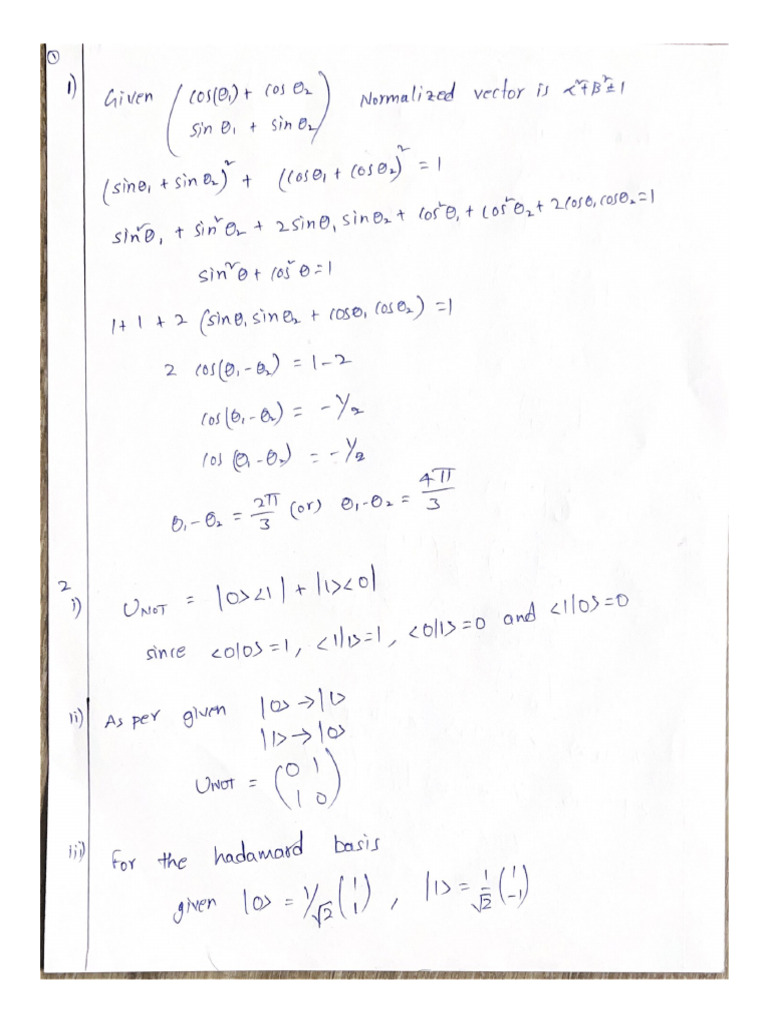 ①
1) Given ( cos(θ₁) + cos θ₂ Normalized vector is α²+β²=1
sin θ₁ + sin θ₂ )
(sinθ₁ + sin θ₂)² + (cosθ₁ + cosθ₂)² = 1
sin²θ₁ + sin²θ₂ + 2 sinθ₁ sinθ₂ + cos²θ₁ + cos²θ₂ + 2 cosθ₁ cosθ₂ = 1
sin²θ + cos²θ = 1
1 + 1 + 2 (sinθ₁ sinθ₂ + cosθ₁ cosθ₂) = 1
2 cos(θ₁ - θ₂) = 1 - 2
cos(θ₁ - θ₂) = -1/2
cos(θ₁ - θ₂) = -1/2
θ₁ - θ₂ = 2π/3 (or) θ₁ - θ₂ = 4π/3
2
i) U_NOT = |0><1| + |1><0|
since <0|0> = 1, <1|1> = 1, <0|1> = 0 and <1|0> = 0
ii) As per given |0> → |1>
|1> → |0>
U_NOT = (0 1
1 0)
iii) For the hadamard basis
given |0> = 1/√2 (1 1), |1> = 1/√2 (1 -1)